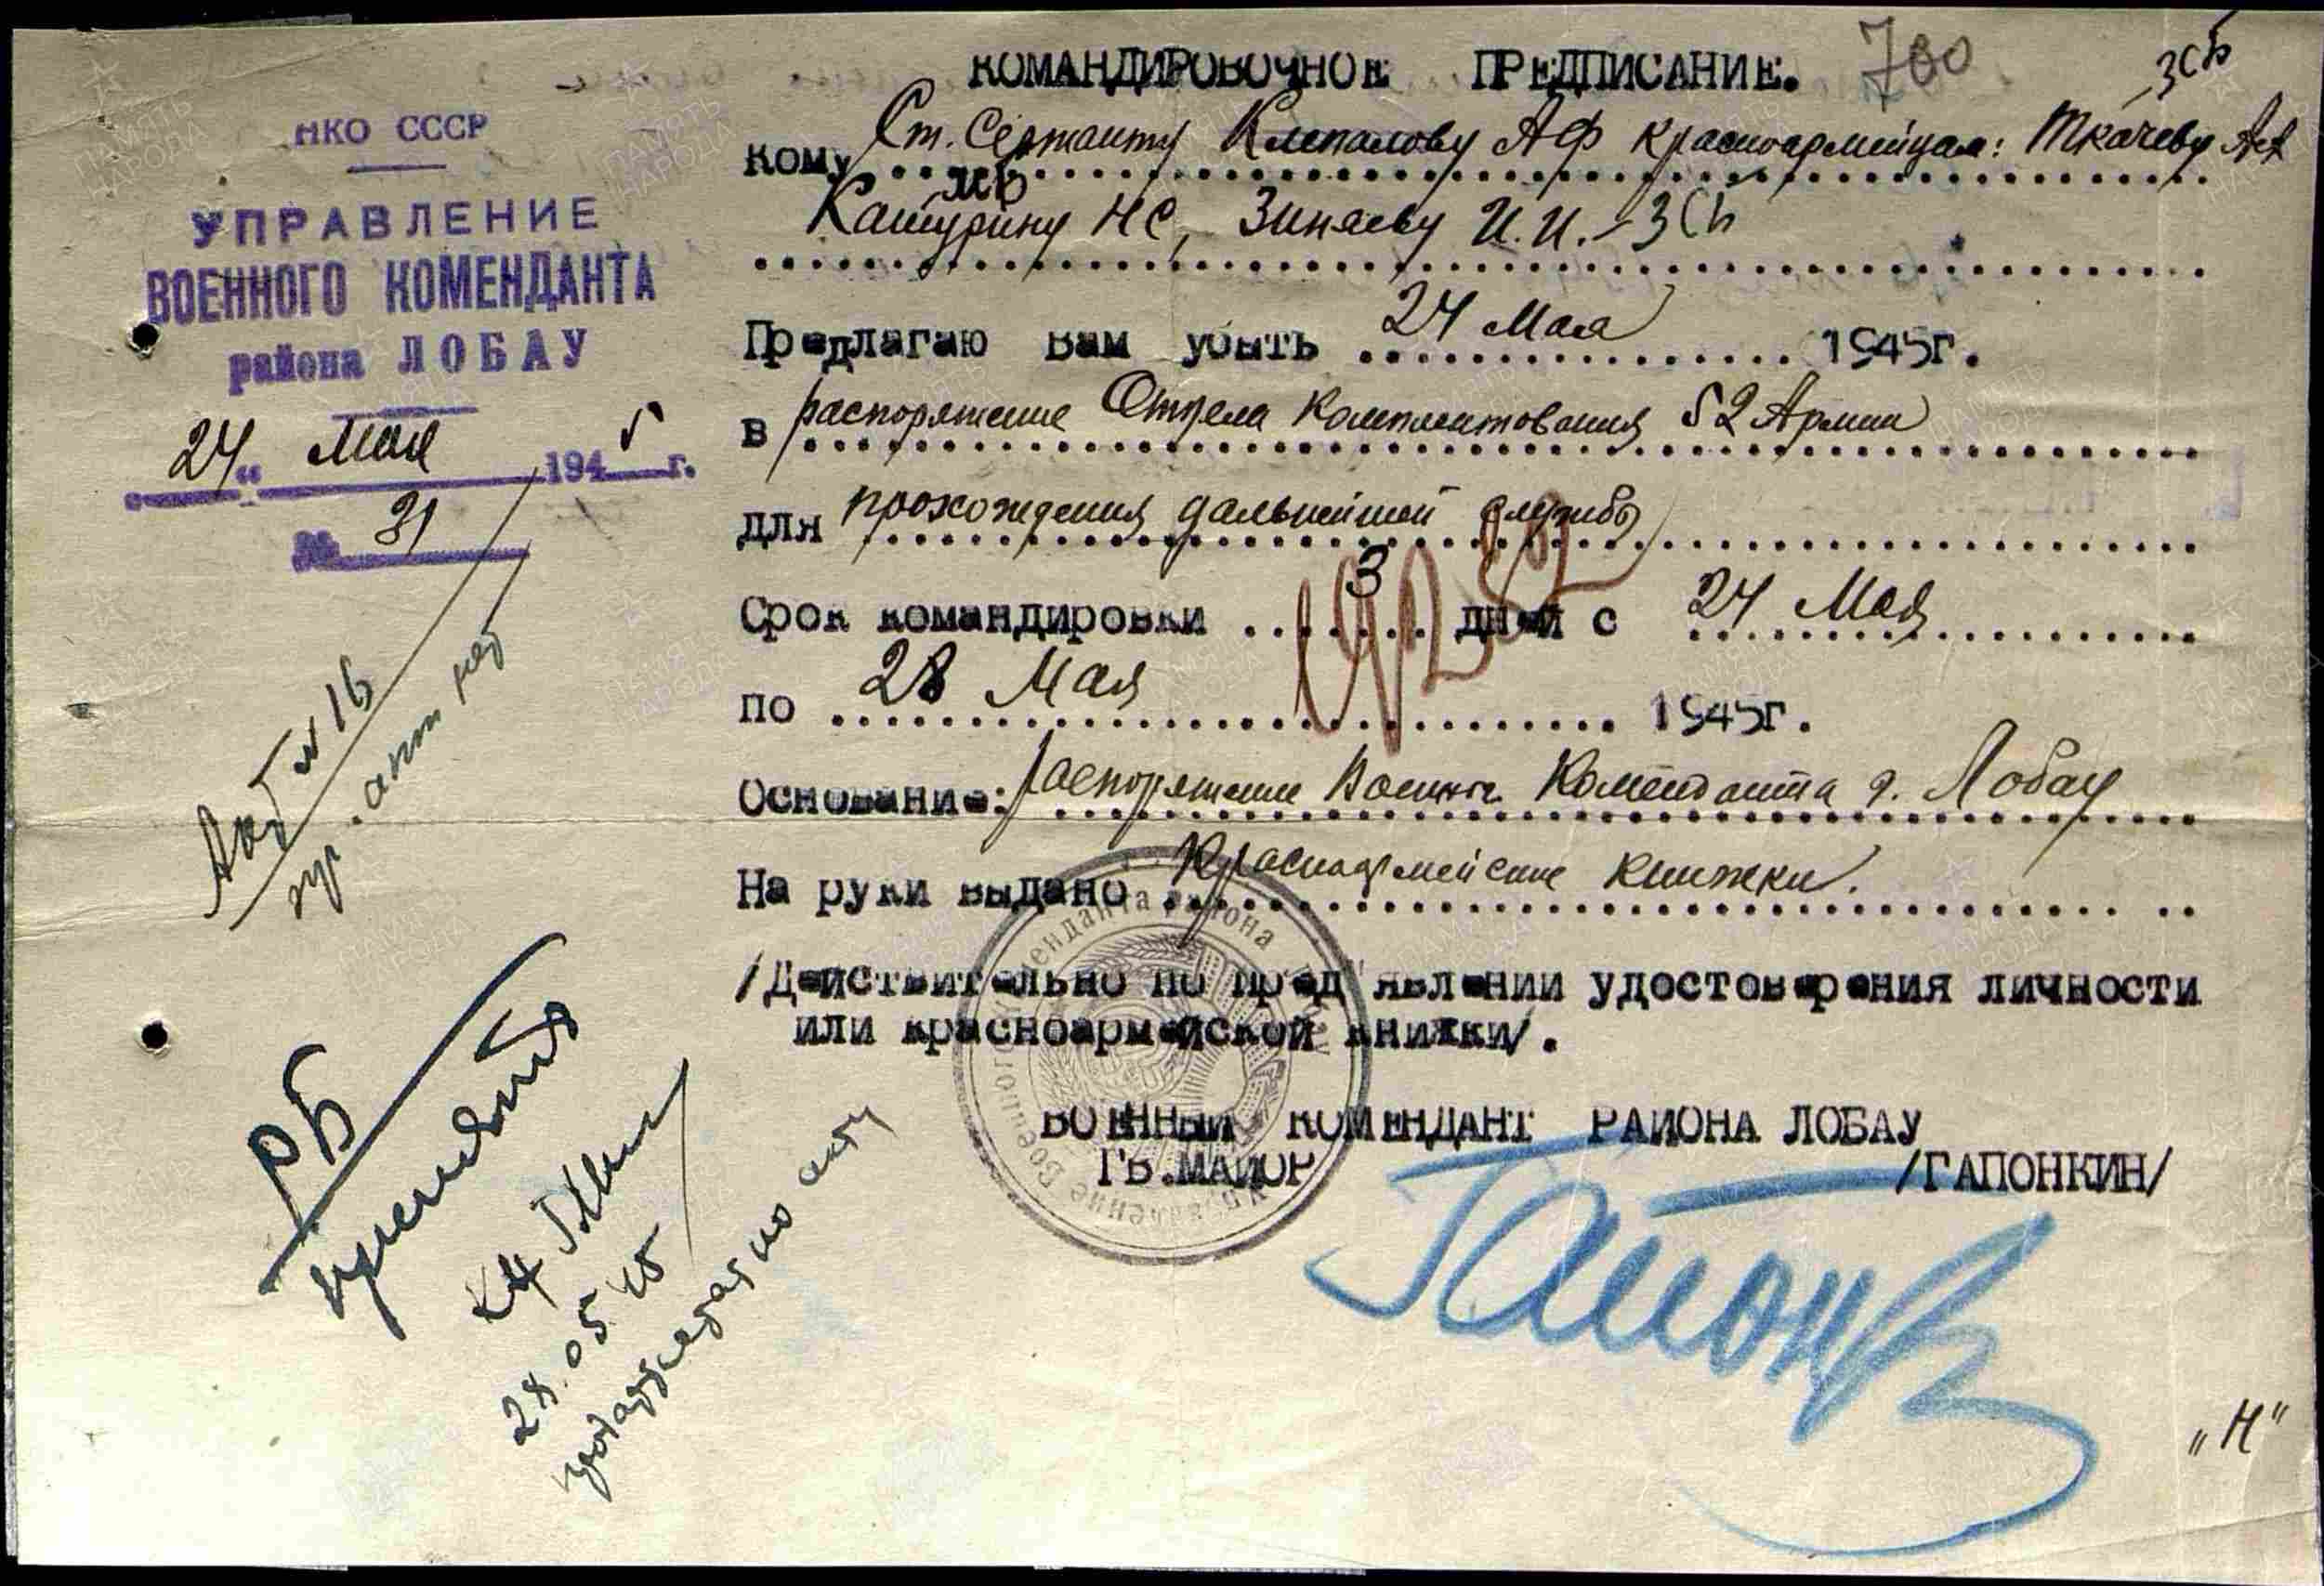 НКО СССР
УПРАВЛЕНИЕ
ВОЕННОГО КОМЕНДАНТА
района ЛОБАУ
24 " Мая 1945 г.
№ 31
КОМАНДИРОВОЧНОЕ ПРЕДПИСАНИЕ. 700
Кому Ст. Сержанту Клепалову АФ Красноармейцам: Ткачеву
Кашурину НС, Зиняеву И.И.
Предлагаю Вам убыть 24 Мая 1945г.
в распоряжение Отдела Комплектования 52 Армии
для прохождения дальнейшей службы
Срок командировки 3 дней с 24 Мая
по 28 Мая 1945г.
Основание: распоряжение Военн. Коменданта г. Лобау
На руки выдано Красноармейские книжки.
/Действительно по пред"явлении удостоверения личности
или красноармейской книжки/.
ВОЕННЫЙ КОМЕНДАНТ РАЙОНА ЛОБАУ
ГВ.МАЙОР /ГАПОНКИН/
Управление Военного коменданта района
№ 16
РБ
28.05.45
„Н"
ПАМЯТЬ НАРОДА